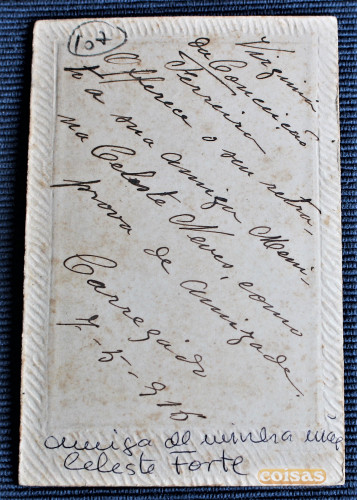 107
Virginia
da Conceição
Ferreira
Offerece o seu retra-
to a sua amiga Meni-
na Celeste Neves, como
prova de amizade.
Carregado
7-5-916
amiga de minha mãe
Celeste Forte
coisas